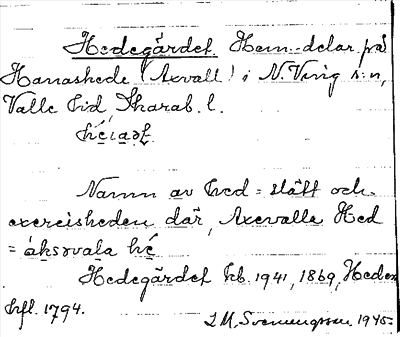 Hedegärdet Hem.-delar på
Hanashede (Axvall) i N. Ving s:n,
Valle hd Skarab. l.
Namn av hed = slätt och
exercisheden där, Axevalla Hed
= áksəvala hé
Hedegärdet kb. 1941, 1869, Heden
hfl. 1794.
1945